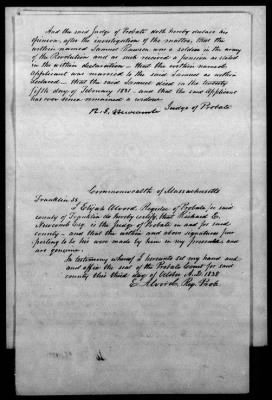 And the said Judge of Probate doth hereby declare his
opinion, after the investigation of the matter, that the
within named Samuel Rawson was a soldier in the army
of the Revolution and as such received a pension as stated
in the within declaration - that the within named
applicant was married to the said Samuel as within
declared - that the said Samuel died in the twenty
fifth day of February 1831 - and that the said applicant
has ever since remained a widow
R. E. Newcomb Judge of Probate
Commonwealth of Massachusetts
Franklin ss.
I Elijah Alvord, Register of Probate, in said
county of Franklin do hereby certify, that Richard E.
Newcomb Esq. is the Judge of Probate in and for said
county - and that the within and above signatures pur
porting to be his were made by him in my presence and
are genuine.
In testimony whereof I hereunto set my hand and
and affix the seal of the Probate Court for said
county this third day of October A.D. 1838
E. Alvord, Reg. Prob.